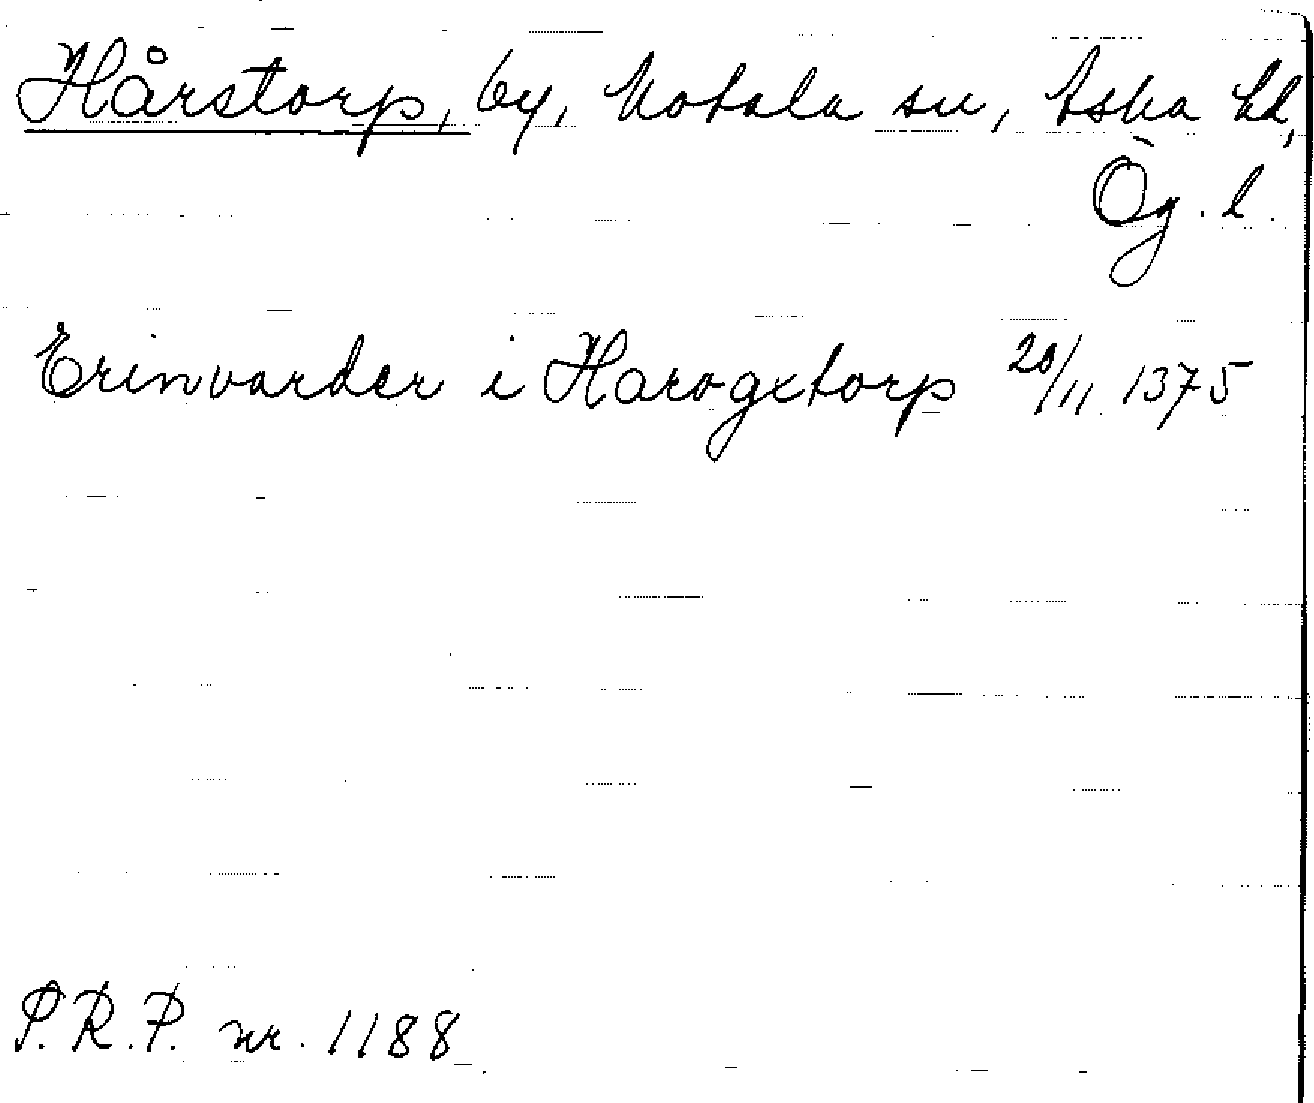 Hårstorp, by, Motala sn, Aska hd,
Ög. l.
Erinvarder i Harogxtorp 20/11 1375
P.R.P. nr. 1188